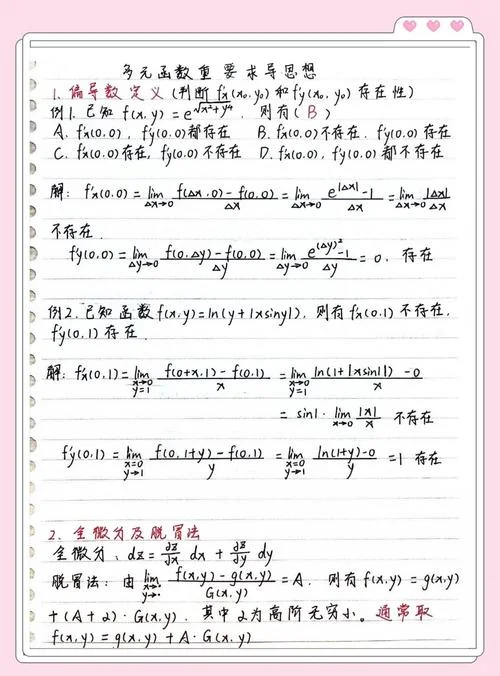 多元函数重要求导思想
1. 偏导数定义 (判断 fx(x₀,y₀) 和 fy(x₀,y₀) 存在性)
例1. 已知 f(x,y)=e^√(x²+y⁴), 则有(B)
A. f'x(0,0), f'y(0,0)都存在 B. f'x(0,0)不存在, f'y(0,0)存在
C. f'x(0,0)存在, f'y(0,0)不存在 D. f'x(0,0), f'y(0,0)都不存在
解: f'x(0,0)=lim Δx→0 (f(Δx,0)-f(0,0))/Δx = lim Δx→0 (e^|Δx|-1)/Δx = lim Δx→0 |Δx|/Δx
不存在.
f'y(0,0)=lim Δy→0 (f(0,Δy)-f(0,0))/Δy = lim Δy→0 (e^(Δy)²-1)/Δy = 0, 存在
例2. 已知函数 f(x,y)=ln(y+|xsiny|), 则有 f'x(0,1)不存在,
f'y(0,1)存在.
解: f'x(0,1)=lim x→0 y=1 (f(0+x,1)-f(0,1))/x = lim x→0 y=1 (ln(1+|xsin1|)-0)/x
= sin1· lim x→0 |x|/x 不存在
f'y(0,1)=lim x=0 y→1 (f(0,1+y)-f(0,1))/y = lim x=0 y→1 (ln(1+y)-0)/y =1 存在
2. 全微分及脱冒法
全微分: dz=∂z/∂x dx + ∂z/∂y dy
脱冒法: 由 lim x→· y→· (f(x,y)-g(x,y))/G(x,y) =A, 则有 f(x,y)=g(x,y)
+(A+2)·G(x,y), 其中2为高阶无穷小。通常取
f(x,y)=g(x,y)+A·G(x,y)